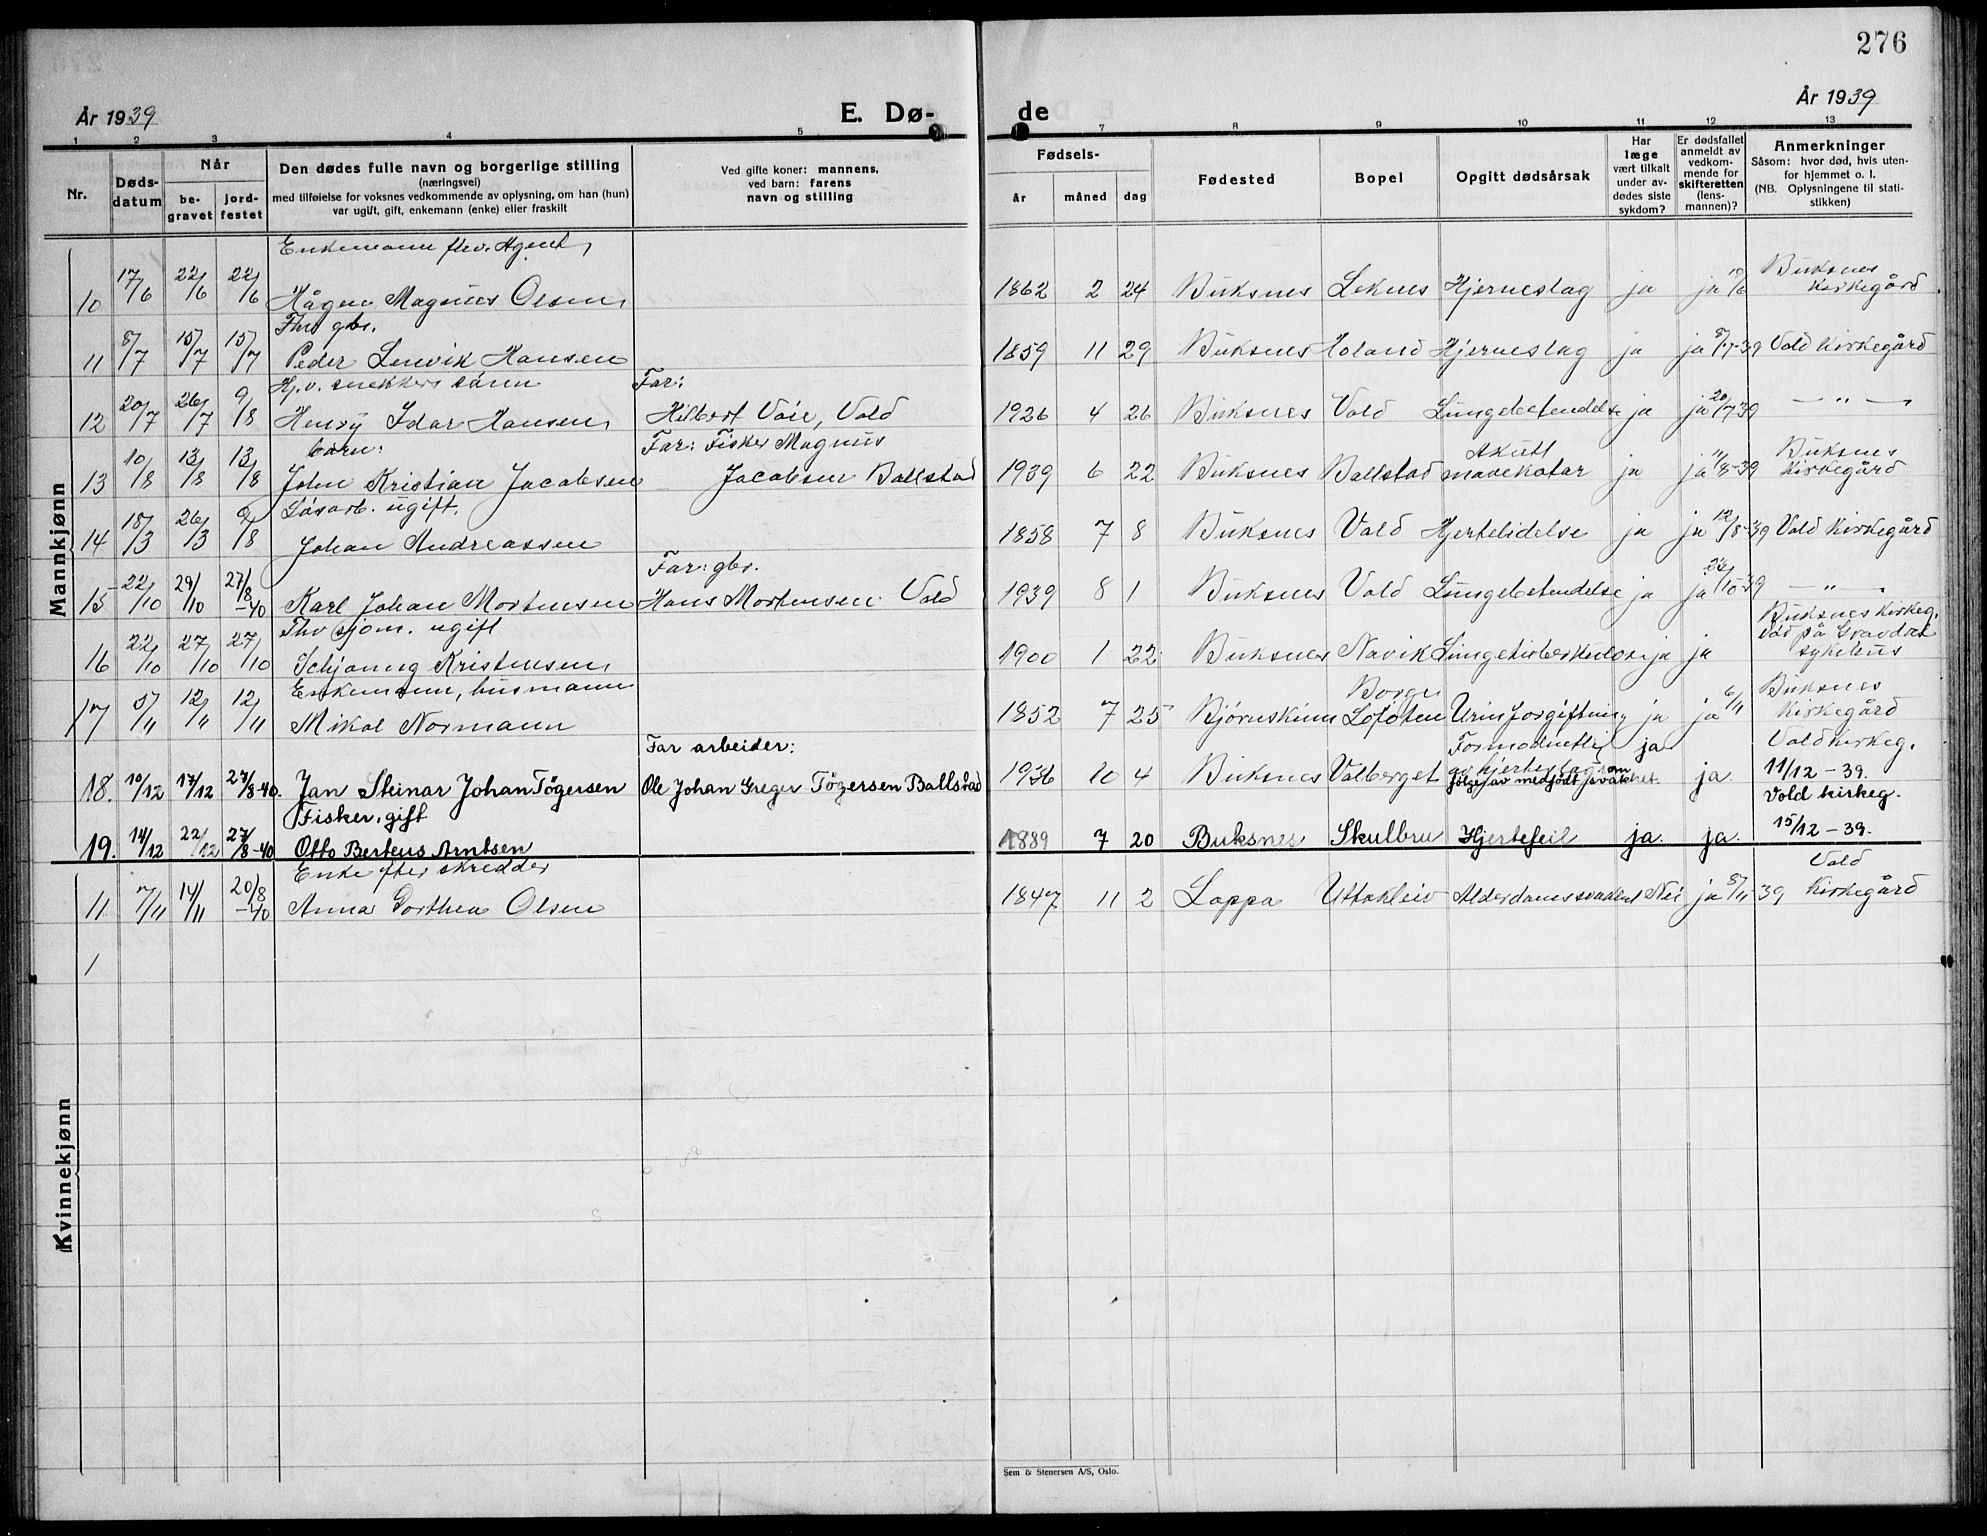 276
År 1939 E. Dø- de År 1939
1 2 3 4 5 7 8 9 10 11 12 13
Nr. Dødsdatum Når begravet jordfestet
Den dødes fulle navn og borgerlige stilling
(næringsvei)
med tilføielse for voksnes vedkommende av oplysning, om han (hun)
var ugift, gift, enkemann (enke) eller fraskilt
Ved gifte koner: mannens,
ved barn: farens
navn og stilling
Fødsels-
år måned dag
Fødested Bopel Opgitt dødsårsak
Har læge vært tilkalt under avdødes siste sykdom?
Er dødsfallet anmeldt av vedkommende for skifteretten (lensmannen)?
Anmerkninger
Såsom: hvor død, hvis utenfor hjemmet o. l.
(NB. Oplysningene til statistikken)
Mannkjønn
Enkemann fhv. Agent,
10 17/6 22/6 22/6 Hågen Magnus Olsen 1862 2 24 Buksnes Leknes Hjerneslag ja ja 19/6 Buksnes Kirkegård
Fhv gbr.
11 8/7 15/7 15/7 Peder Lenvik Hansen 1859 11 29 Buksnes Holand Hjerneslag ja ja 8/7-39 Vold Kirkegård
Hj.v. snekkers sønn Far:
12 20/7 26/7 9/8 Henry Idar Hansen Hilbert Voie, Vold 1926 4 26 Buksnes Vold Lungebetendelse ja ja 20/7-39 — " —
barn: Far: Fisker Magnus
13 10/8 13/8 13/8 John Kristian Jacobsen Jacobsen Ballstad 1939 6 22 Buksnes Ballstad Akutt mavekatar ja ja 11/8-39 Buksnes Kirkegård
Løsarb. ugift.
14 18/3 26/3 9/8 Johan Andreassen 1858 7 8 Buksnes Vold Hjertelidelse ja ja 12/8-39 Vold Kirkegård
Far: gbr.
15 22/10 29/10 27/8-40 Karl Johan Mortensen Hans Mortensen Vold 1939 8 1 Buksnes Vold Lungebetendelse ja ja 22/10-39 — " —
Fhv sjøm. ugift
16 22/10 27/10 27/10 Schjønng Kristensen 1900 1 22 Buksnes Navik Lungetuberkulose ja ja Buksnes Kirkeg. død på Gravdal sykehus
Enkemann, husmann
17 5/11 12/11 12/11 Mikal Normann 1852 7 25 Bjørnskinn Borge Lofoten Urinforgiftning ja ja 6/11 Buksnes Kirkegård
Far arbeider:
18. 10/12 17/12 27/8-40. Jan Steinar Johan Tøgersen Ole Johan Greger Tøgersen Ballstad 1936 10 4 Buksnes Valberget Formodnetlig av hjerteslag som følge av medfødt svakhet. ja ja. Vold kirkeg. 11/12-39.
Fisker, gift
19. 14/12 22/12 27/8-40 Otto Berteus Arntsen 1889 7 20 Buksnes Skulbru Hjertefeil ja. ja. Vold kirkeg. 15/12-39.
Kvinnekjønn
Enke efter skredder
11 7/11 14/11 20/8-40 Anna Dorthea Olsen 1847 11 2 Loppa Uttakleiv Alderdomssvakhet Nei ja 8/11-39 Vold Kirkegård
1
Sem & Stenersen A/S, Oslo.